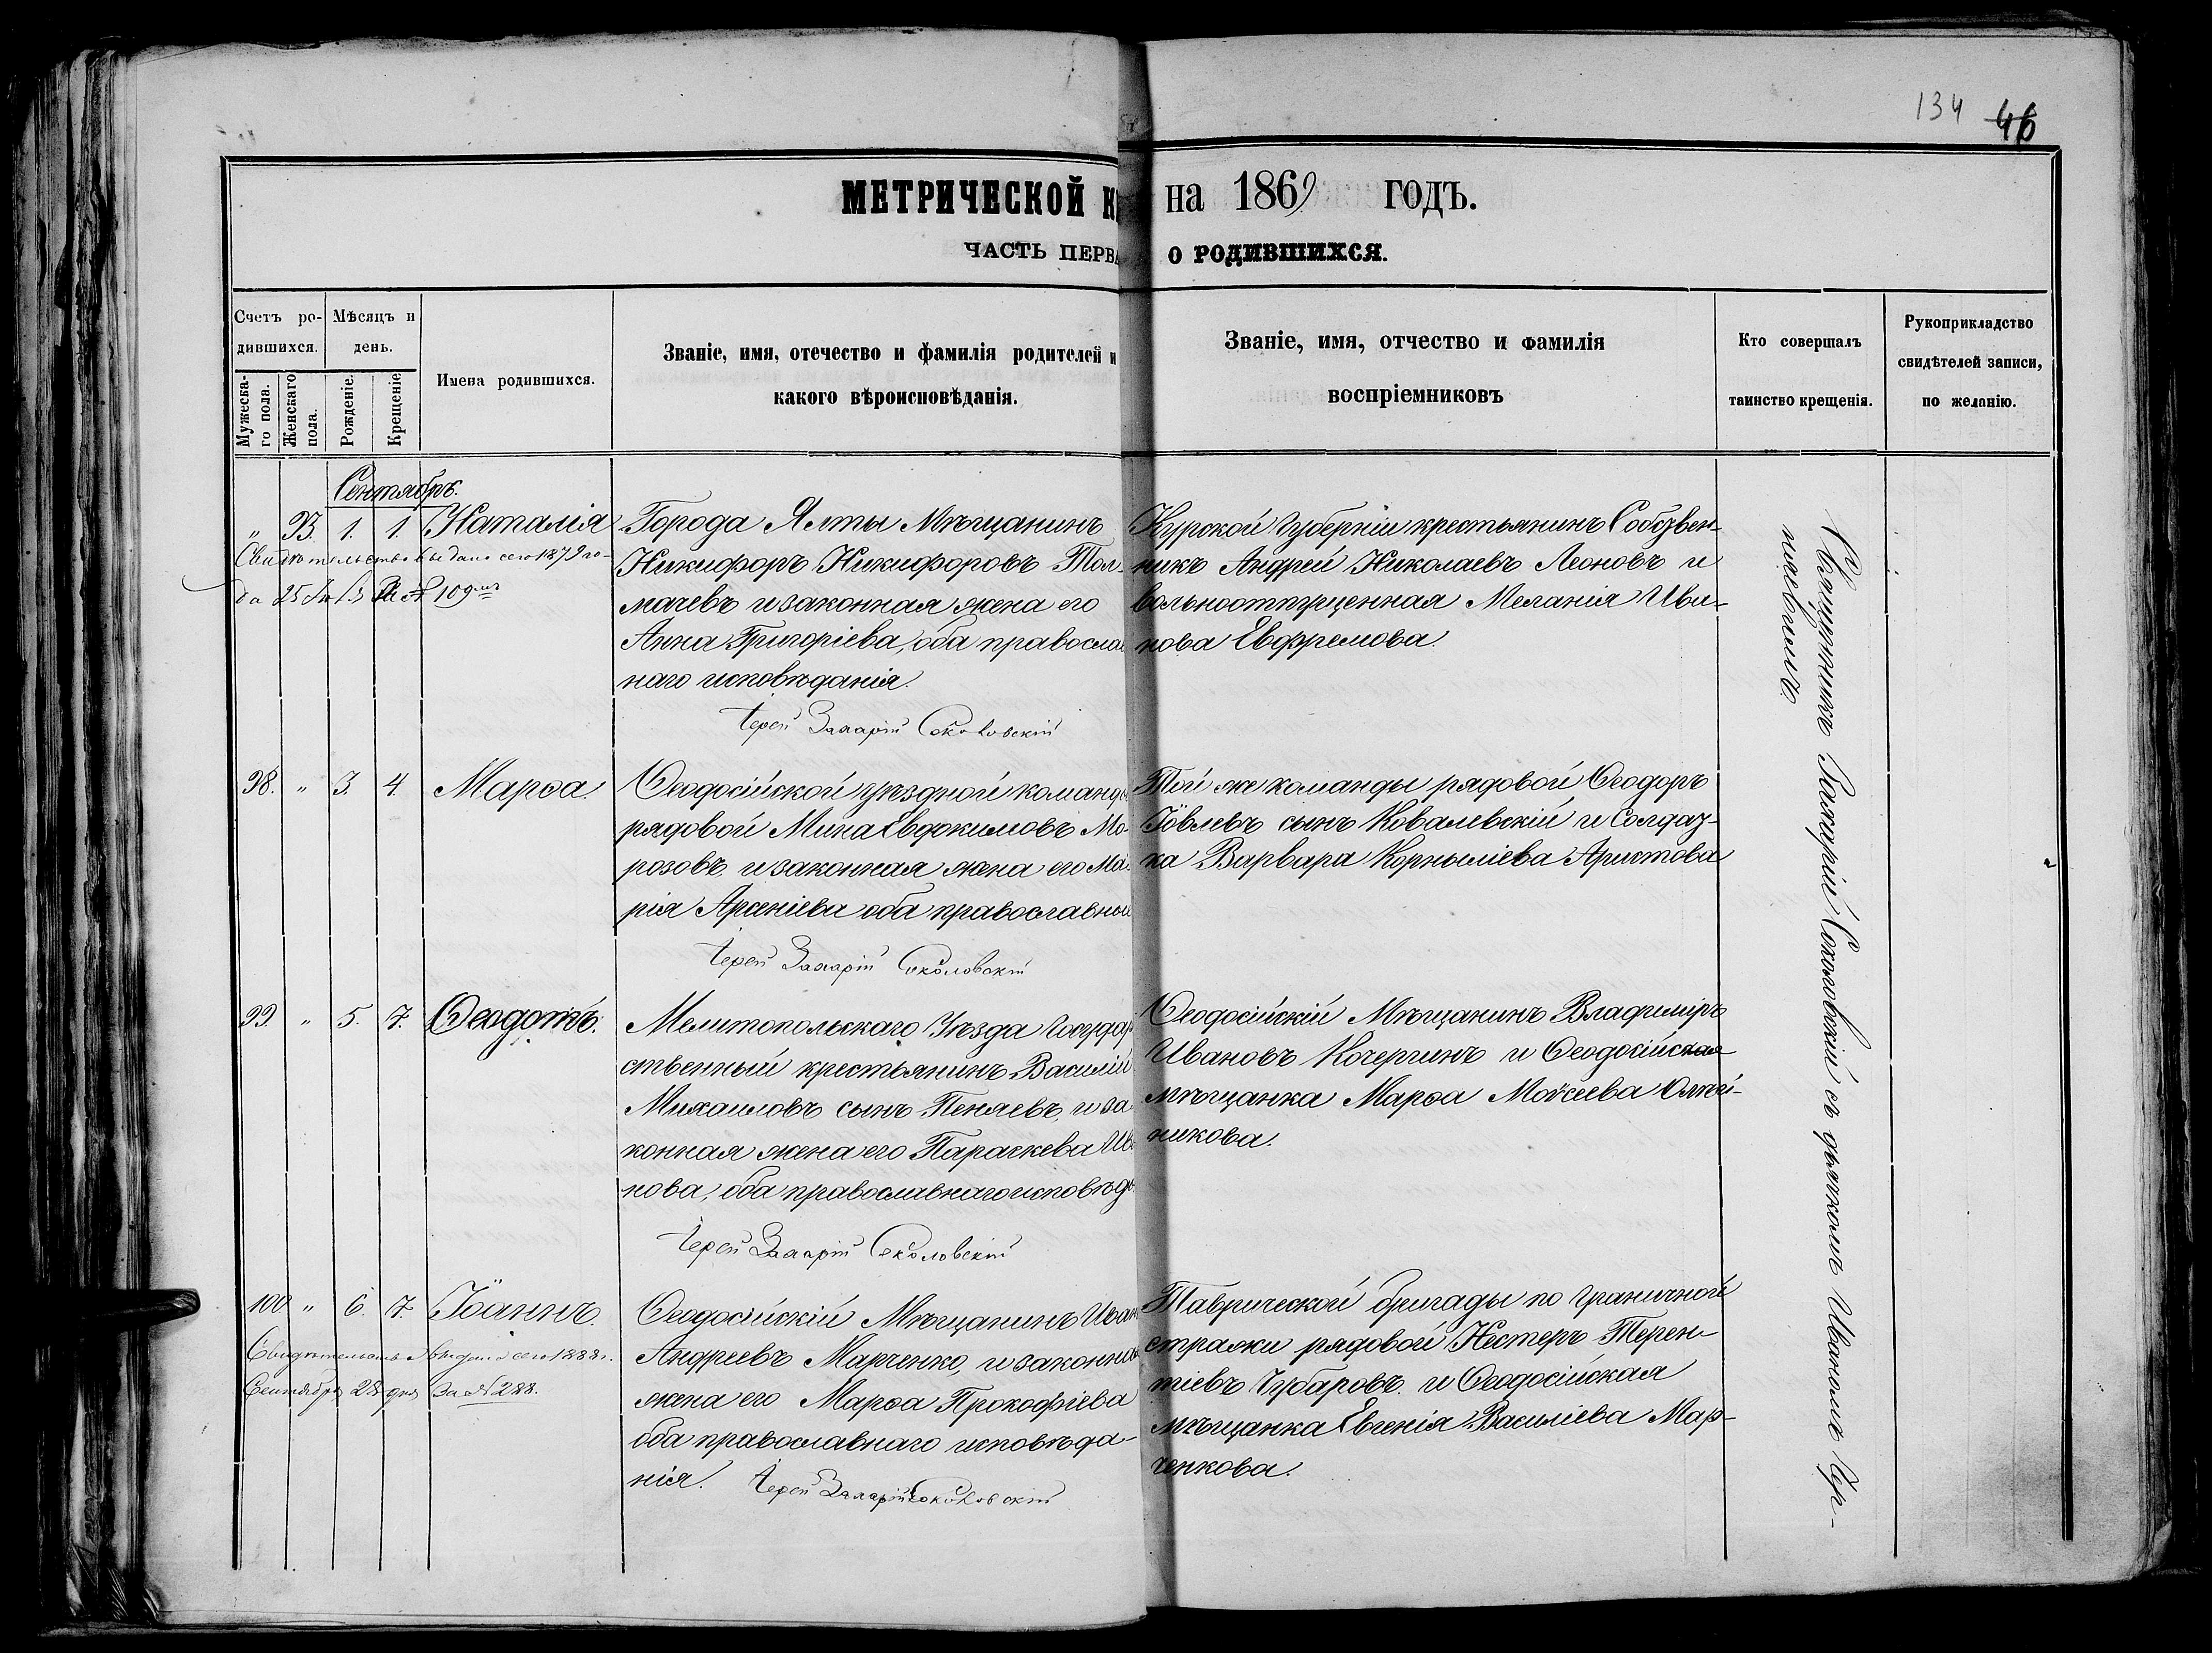 134 46
МЕТРИЧЕСКОЙ К на 1869 ГОДЪ.
ЧАСТЬ ПЕРВА О РОДИВШИХСЯ.
Счетъ ро-
дившихся.
Мужеска-
го пола.
Женскаго
пола.
Мѣсяцъ и
день.
Рожденіе.
Крещеніе
Имена родившихся.
Званіе, имя, отечество и фамилія родителей и
какого вѣроисповѣданія.
Званіе, имя, отчество и фамилія
воспріемниковъ
Кто совершалъ
таинство крещенія.
Рукоприкладство
свидѣтелей записи,
по желанію.
Сентябрь.
" 93. 1. 1. Наталія
Свидѣтельство выдано сего 1879 го-
да 25 За № 109
Города Ялты Мѣщанинъ
Никифоръ Никифоровъ Тол-
мачевъ и законная жена его
Анна Григоріева, оба правосла
наго исповѣданія.
Іерей Захарій Соколовскій
Курской Губерніи крестьянинъ Собствен-
никъ Андрей Николаевъ Леоновъ и
вольноотпущенная Меланія Ива-
нова Евфремова.
98. " 3. 4. Марѳа.
Ѳеодосійской уѣздной команды
рядовой Мина Евдокимовъ Мо-
розовъ и законная жена его Ма-
рія Арсеніева оба православной
Іерей Захарій Соколовскій
Той же команды рядовой Ѳеодоръ
Іовлевъ сынъ Ковалевскій и Солдат-
ка Варвара Корниліева Аристова
99. " 5. 7. Ѳеодотъ.
Мелитопольскаго Уѣзда Государ
ственный крестьянинъ Василій
Михаиловъ сынъ Пеняевъ, и за
конная жена его Параскева Ив
нова, оба православнаго исповѣд
Іерей Захарій Соколовскій
Ѳеодосійскій Мѣщанинъ Владиміръ
Ивановъ Кочергинъ и Ѳеодосійская
мѣщанка Марѳа Моѵсеева Олѣй-
никова.
100 " 6. 7. Іоаннъ.
Свидѣтельство выдано сего 1888 г.
Сентября 28 дня За № 288.
Ѳеодосійскій Мѣщанинъ Иван
Андреевъ Марченко, и законная
жена его Марѳа Прокофіева
оба православнаго исповѣда-
нія. Іерей Захарій Соколовскій
Таврической бригады по граничной
стражи рядовой Нестеръ Терен-
тіевъ Чубаровъ и Ѳеодосійская
мѣщанка Евгенія Василіева Мар-
ченкова.
Священникъ Захарій Соколовскій съ дьячкомъ Иваномъ